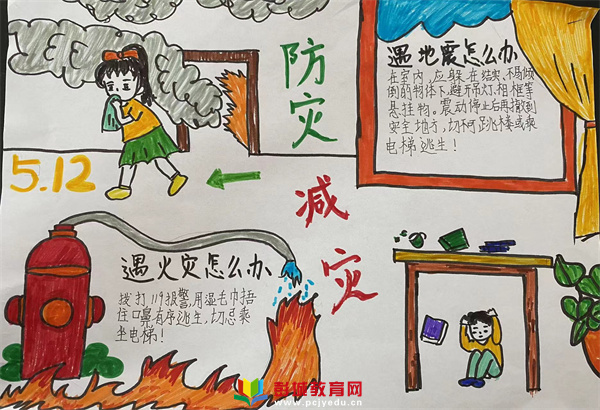 防灾
减灾
5.12
遇地震怎么办
在室内,应躲在结实、不易倾
倒的物体下,避开吊灯、相框等
悬挂物。震动停止后再撤到
安全地方,切不可跳楼或乘
电梯逃生!
遇火灾怎么办
拨打119报警,用湿毛巾捂
住口鼻有序逃生,切忌乘
坐电梯!
彭城教育网
www.pcjyedu.cn